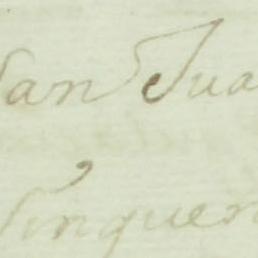 San Jua
Sinquen